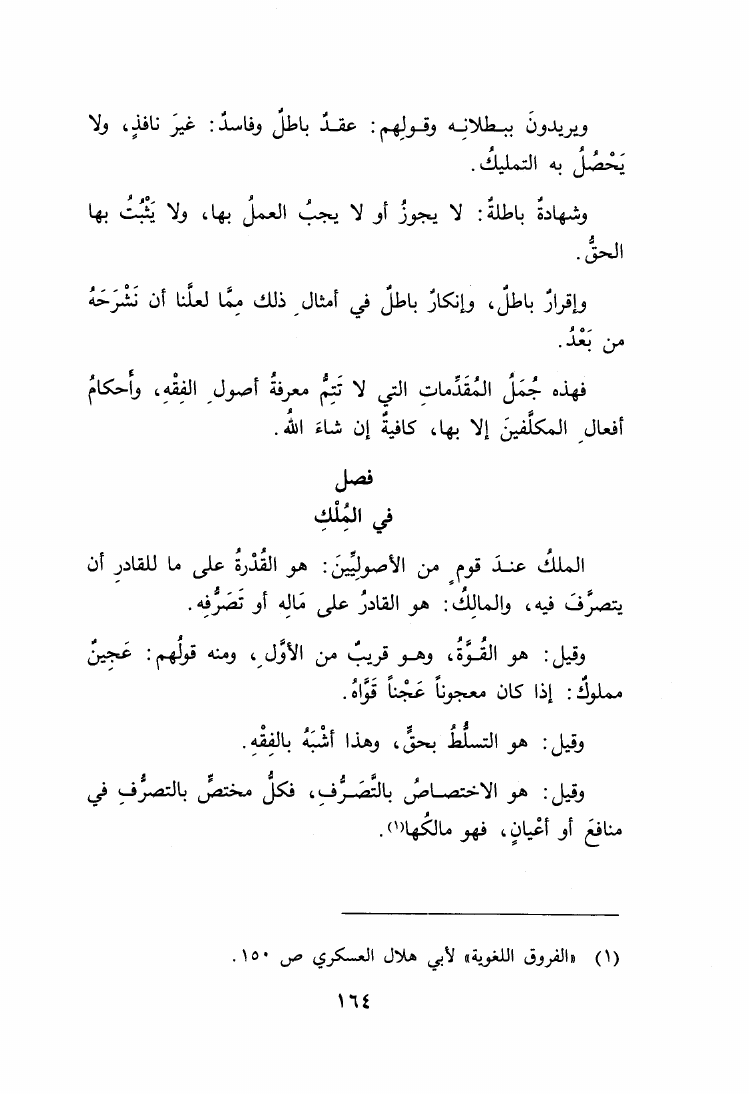 ويريدونَ ببطلانِه وقولِهم: عقدٌ باطلٌ وفاسدٌ: غيرَ نافذٍ، ولا
يَحْصُلُ به التمليكُ.
وشهادةٌ باطلةٌ: لا يجوزُ أو لا يجبُ العملُ بها، ولا يَثْبُتُ بها
الحقُّ.
وإقرارٌ باطلٌ، وإنكارٌ باطلٌ في أمثالِ ذلك مِمَّا لعلَّنا أن نَشْرَحَهُ
من بَعْدُ.
فهذه جُمَلُ المُقَدِّماتِ التي لا تَتِمُّ معرفةُ أصولِ الفِقْهِ، وأَحكامُ
أفعالِ المكلَّفينَ إلا بها، كافيةٌ إن شاءَ اللهُ.
فصل
في المُِلْكِ
الملكُ عندَ قومٍ من الأصوليِّينَ: هو القُدْرةُ على ما للقادرِ أن
يتصرَّفَ فيه، والمالِكُ: هو القادرُ على مَالِه أو تَصَرُّفِه.
وقيل: هو القُوَّةُ، وهو قريبٌ من الأوَّلِ، ومنه قولُهم: عَجِينٌ
مملوكٌ: إذا كان معجوناً عَجْناً قَوَّاهُ.
وقيل: هو التسلُّطُ بحقٍّ، وهذا أَشْبَهُ بالفِقْهِ.
وقيل: هو الاختصاصُ بالتَّصَرُّفِ، فكلُّ مختصٍّ بالتصرُّفِ في
منافعَ أو أعْيانٍ، فهو مالكُها(١).
(١) «الفروق اللغوية» لأبي هلال العسكري ص ١٥٠.
١٦٤